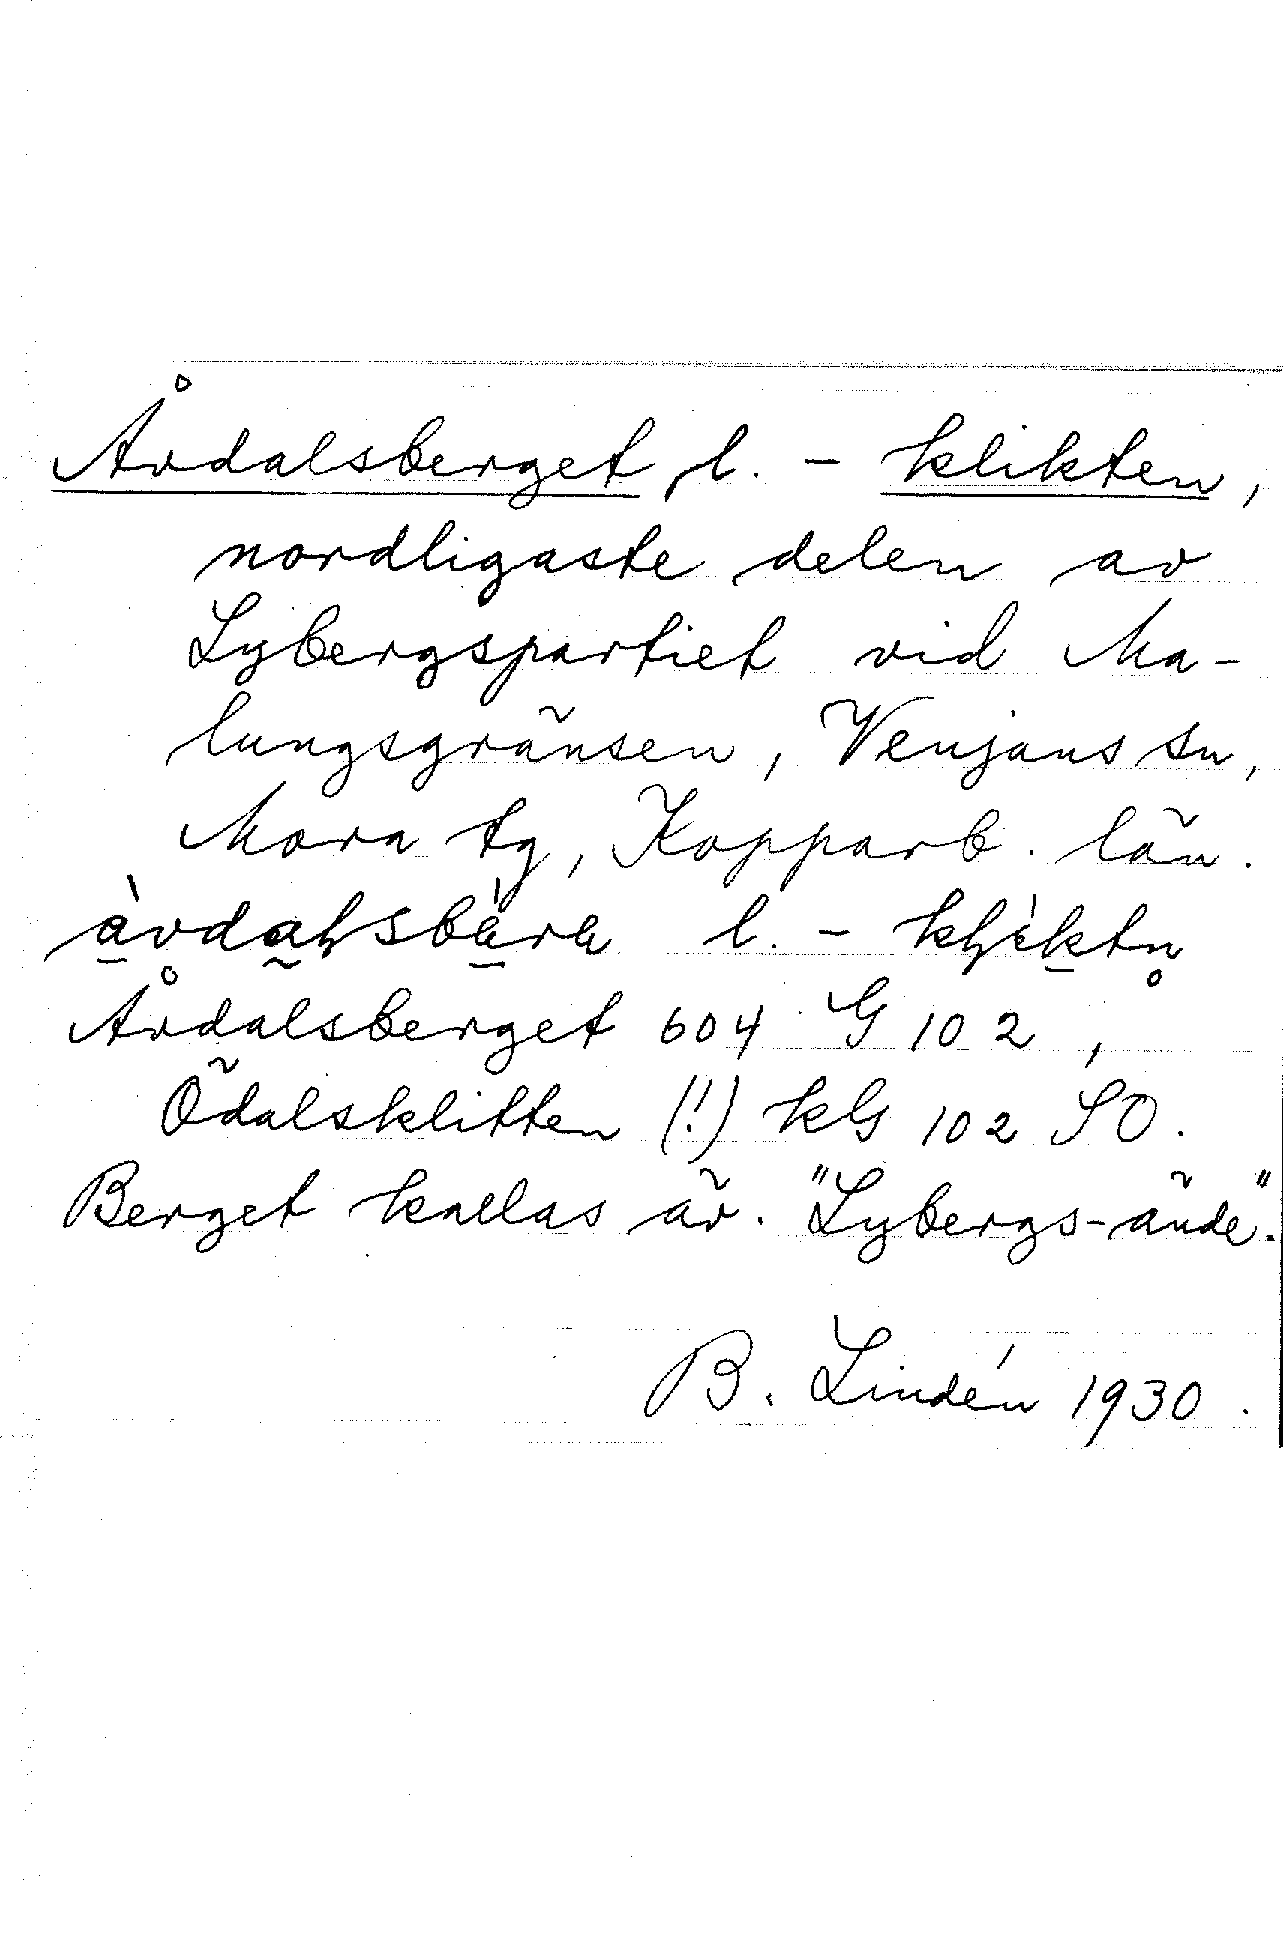 Åvdalsberget, l. - klikten,
nordligaste delen av
Lybergspartiet vid Ma-
lungsgränsen, Venjans sn,
Mora tg, Kopparb. län.
l. -
Åvdalsberget 604 G 102,
Ödalsklitten (!) kG 102 SO.
Berget kallas äv. "Lybergs-ände".
B. Lindén 1930.